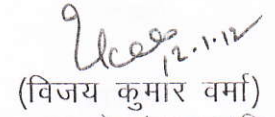 12.1.12
(विजय कुमार वर्मा)